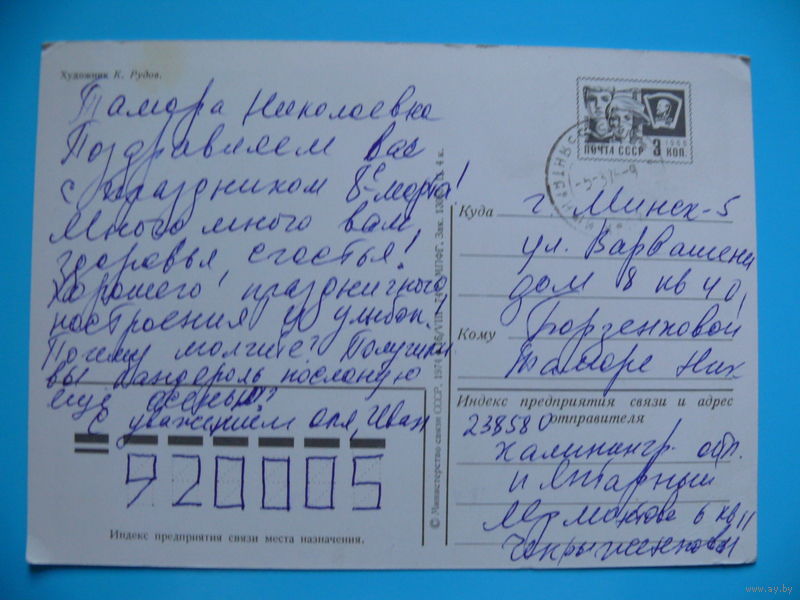 Художник К. Рудов.
Тамара Николаевна
Поздравляем Вас
с праздником 8-ое марта!
Много много вам
здоровья, счастья!
Хорошего, праздничного
настроения и улыбок.
Почему молчите? Получили
вы бандероль посланую
еще осенью?
С уважением Оля, Иван
920005
Индекс предприятия связи места назначения.
© Министерство связи СССР, 1974
ПОЧТА СССР 3 КОП.
1966
Куда г. Минск-5
ул. Варвашени
дом 8 кв 40,
Кому Борзенковой
Тамаре Ник
Индекс предприятия связи и адрес
отправителя
238580
Калинингр. обл.
п Янтарный
кв 11
www.ay.by